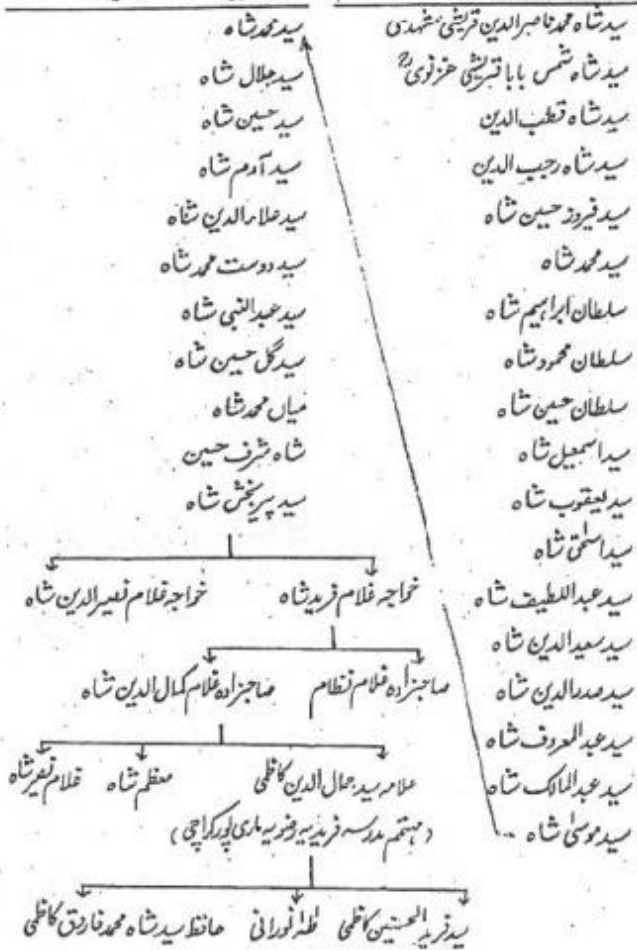 سید شاہ محمد ناصر الدین قریشی مشہدی
سید شاہ شمس بابا قریشی غزنوی
سید شاہ قطب الدین
سید شاہ رجیب الدین
سید فیروز حسین شاہ
سید محمد شاہ
سلطان ابراہیم شاہ
سلطان محمود شاہ
سلطان حسین شاہ
سید اسمعیل شاہ
سید یعقوب شاہ
سید اسحٰق شاہ
سید عبداللطیف شاہ
سید سعید الدین شاہ
سید صدر الدین شاہ
سید عبدالمعروف شاہ
سید عبدالمالک شاہ
سید موسیٰ شاہ
سید محمد شاہ
سید جلال شاہ
سید حسین شاہ
سید آدم شاہ
سید علاء الدین شاہ
سید دوست محمد شاہ
سید عبدالنبی شاہ
سید گل حسین شاہ
میاں محمد شاہ
شاہ شرف حسین
سید پیر بخش شاہ
خواجہ غلام فرید شاہ خواجہ غلام نصیر الدین شاہ
صاحبزادہ غلام نظام صاحبزادہ غلام کمال الدین شاہ
علامہ سید جمال الدین کاظمی معظم شاہ غلام نصیر شاہ
(مہتمم مدرسہ فریدیہ رضویہ ماری پور کراچی)
سید فرید الحسنین کاظمی نورانی حافظ سید شاہ محمد فاروق کاظمی